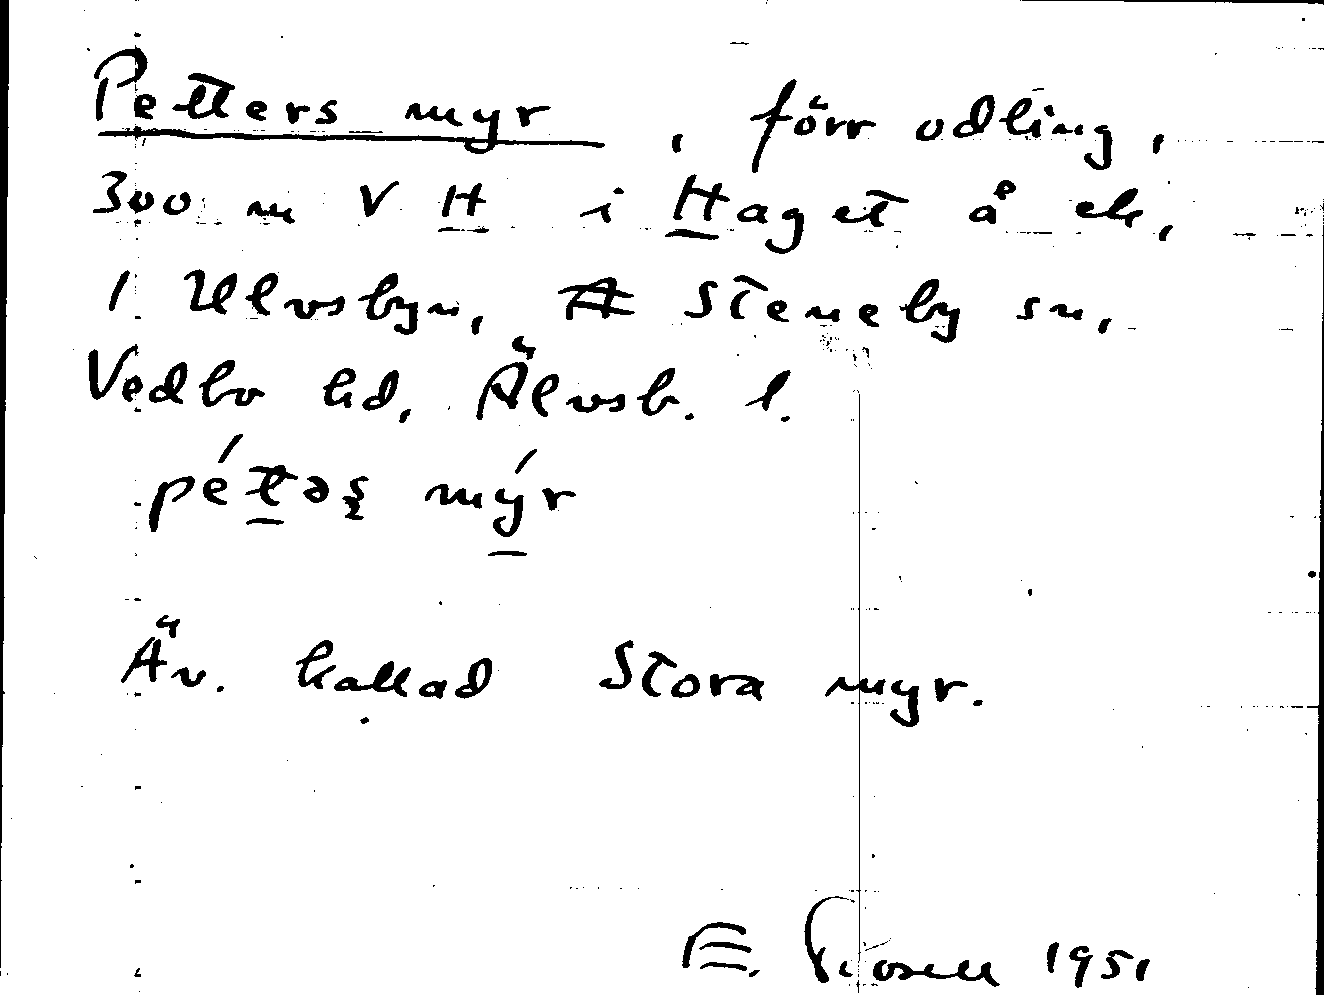 Petters myr, förr odling,
300 m V H i Haget å ek.
1 Ulvsbyn, Steneby sn,
Vedbo hd, Älvsb. l.
pétəş mýr
Äv. kallad Stora myr.
E. Rosell 1951